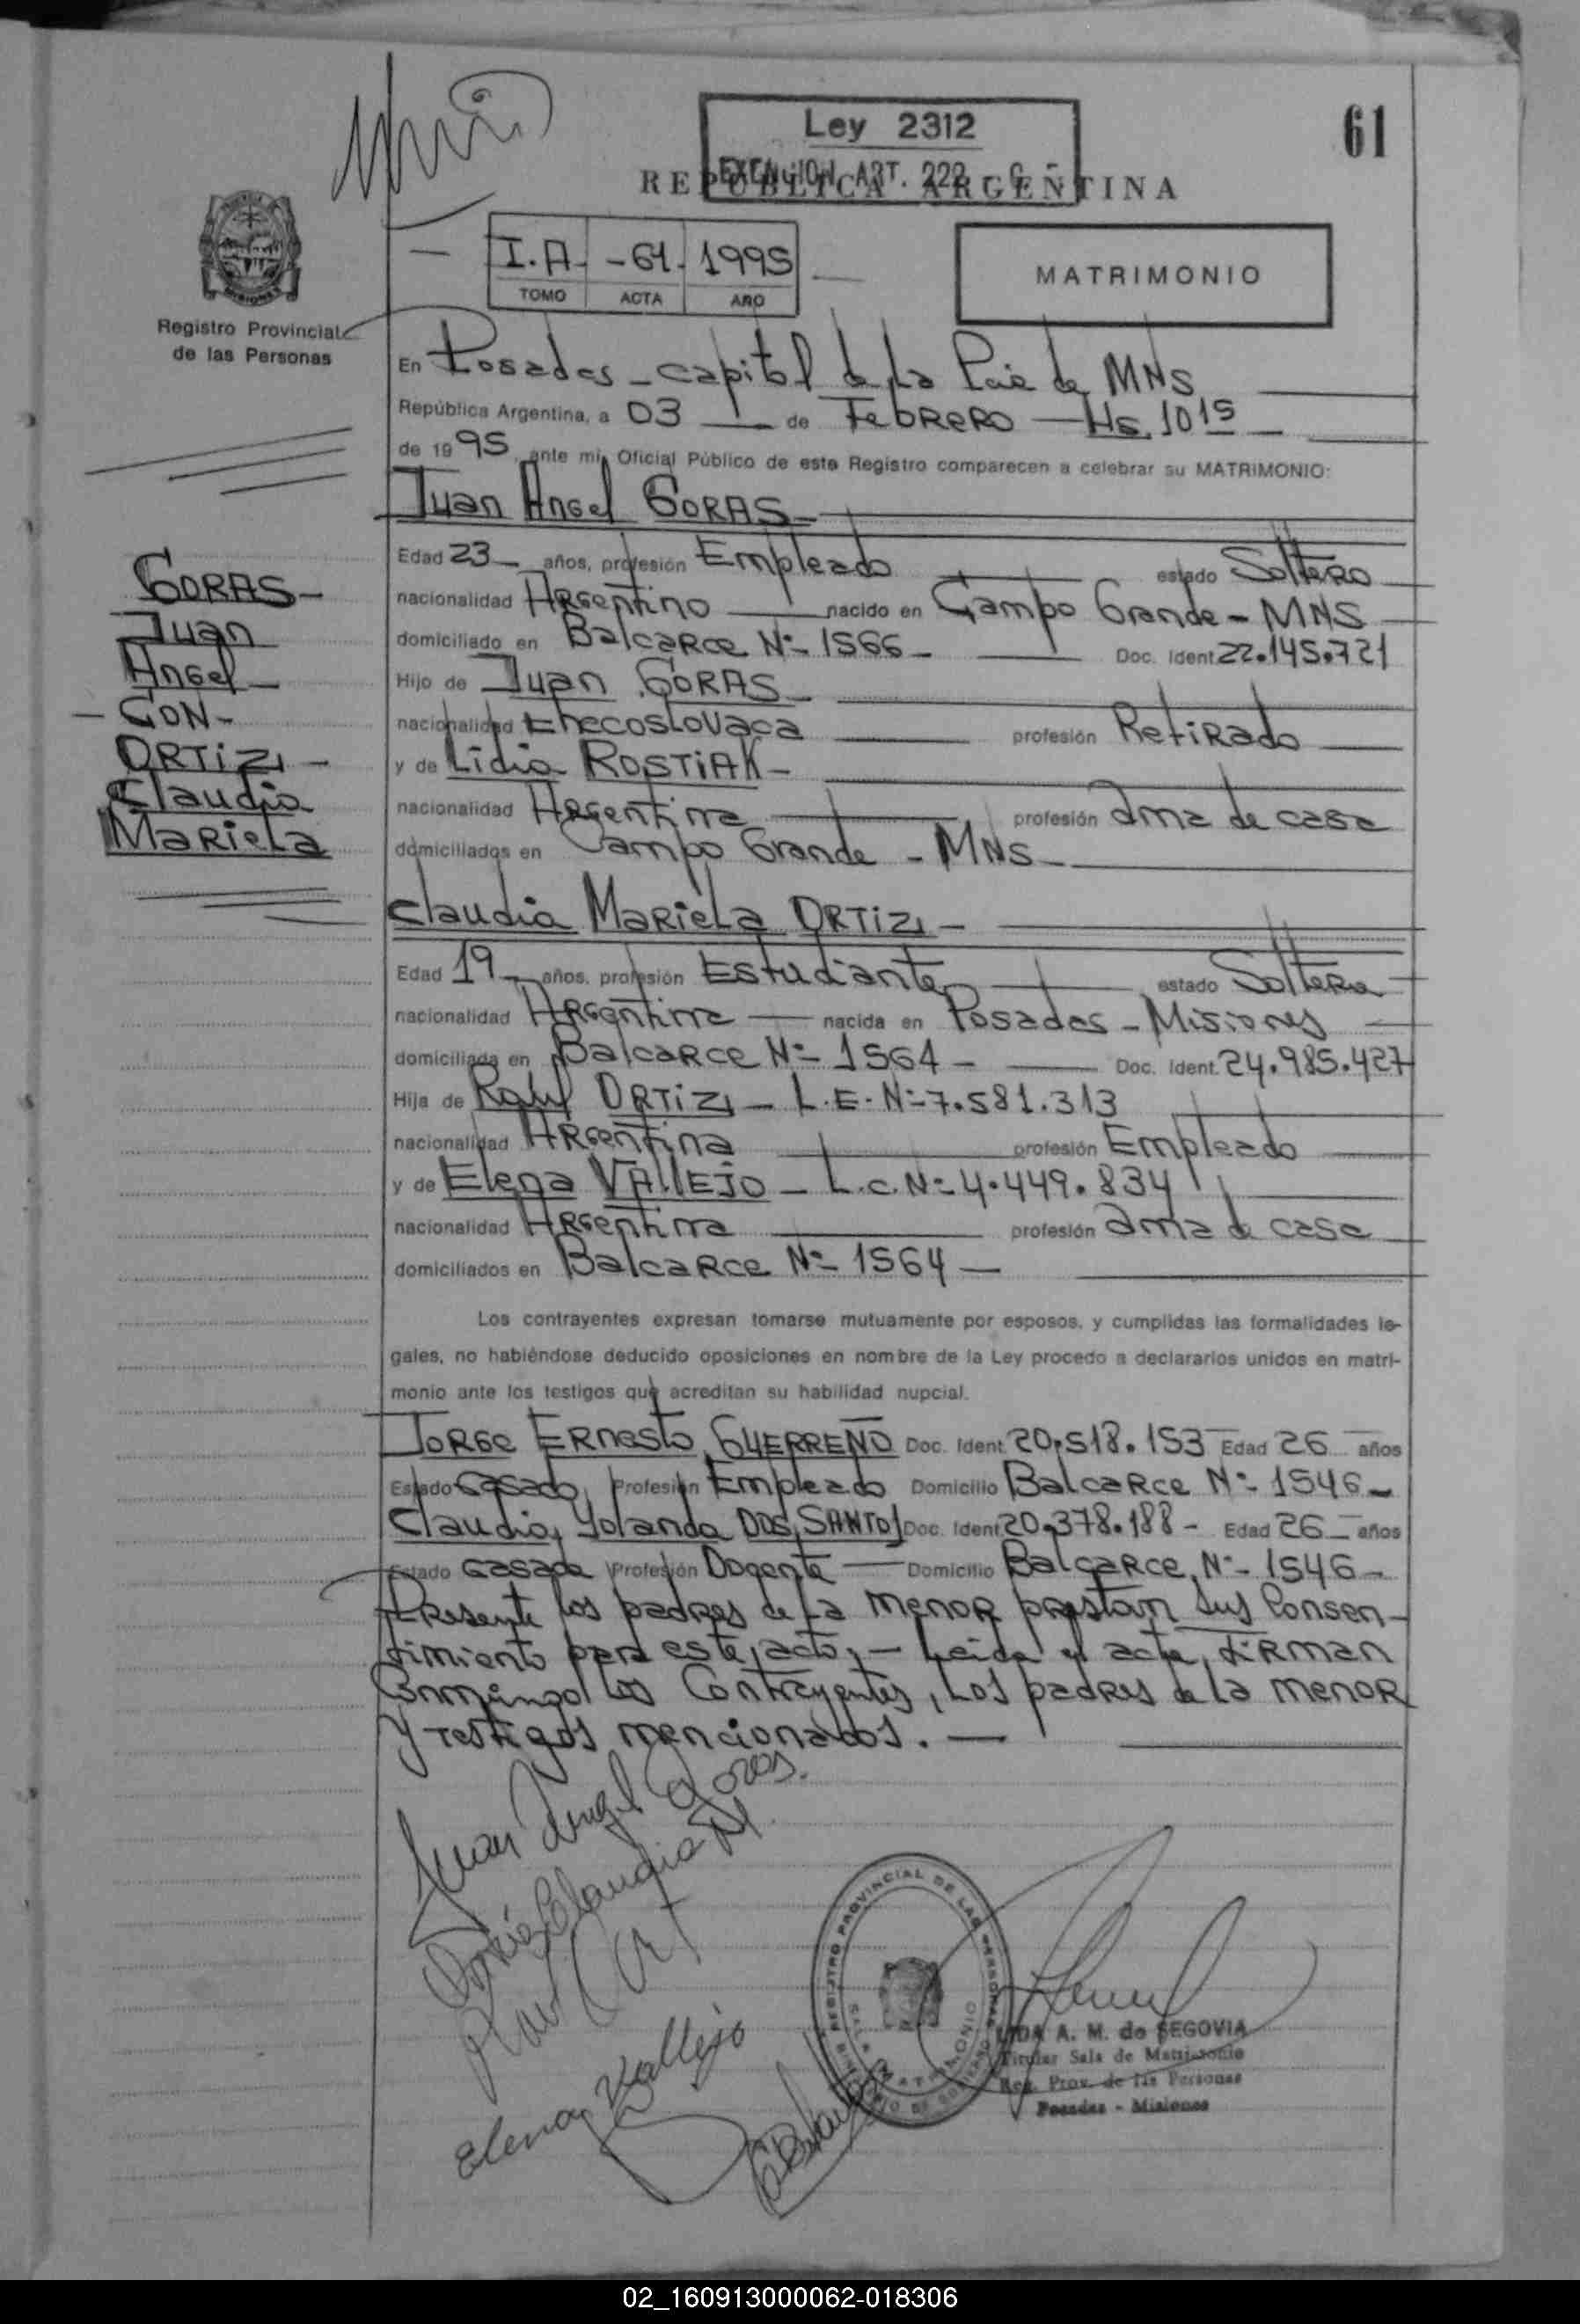 Ley 2312
EXENCION ART. 222 - C -
61
REPUBLICA ARGENTINA
I.A. -61- 1995
TOMO ACTA AÑO
MATRIMONIO
MISIONES
Registro Provincial
de las Personas
En Posadas - capital de la Pcia de MNS
República Argentina, a 03 de Febrero - Hs. 10 15
de 1995, ante mi, Oficial Público de este Registro comparecen a celebrar su MATRIMONIO:
Juan Angel GORAS -
Edad 23 - años, profesión Empleado estado Soltero
nacionalidad Argentino nacido en Campo Grande - MNS
domiciliado en Balcarce Nº 1566 - Doc. Ident. 22.145.721
Hijo de Juan GORAS -
nacionalidad Checoslovaca profesión Retirado
y de Lidia ROSTIAK -
nacionalidad Argentina profesión ama de casa
domiciliados en Campo Grande - MNS -
GORAS -
Juan
Angel -
- CON -
ORTIZ -
Claudia
Mariela
Claudia Mariela ORTIZ -
Edad 19 - años, profesión Estudiante estado Soltera
nacionalidad Argentina nacida en Posadas - Misiones
domiciliada en Balcarce Nº 1564 - Doc. Ident. 24.985.427
Hija de Raúl ORTIZ - L.E. Nº 7.581.313
nacionalidad Argentina profesión Empleado
y de Elena VALLEJO - L.C. Nº 4.449.834
nacionalidad Argentina profesión ama de casa
domiciliados en Balcarce Nº 1564 -
Los contrayentes expresan tomarse mutuamente por esposos, y cumplidas las formalidades le-
gales, no habiéndose deducido oposiciones en nombre de la Ley procedo a declararlos unidos en matri-
monio ante los testigos que acreditan su habilidad nupcial.
Jorge Ernesto GUERREÑO Doc. Ident. 20.518.153 Edad 26 años
Estado Casado Profesión Empleado Domicilio Balcarce Nº 1546 -
Claudia Yolanda DOS SANTOS Doc. Ident. 20.378.188 - Edad 26 - años
Estado Casada Profesión Docente - Domicilio Balcarce Nº 1546 -
Presente los padres de la menor prestan sus Consen-
timiento para este acto, - Leida el acta, firman
Conmingo los Contrayentes, Los padres de la menor
y testigos mencionados. -
Juan Angel Goras.
Ortiz Claudia M
Elena Vallejo
REGISTRO PROVINCIAL DE LAS PERSONAS
SALA MATRIMONIO
MINISTERIO DE GOBIERNO
LIDA A. M. de SEGOVIA
Titular Sala de Matrimonio
Reg. Prov. de las Personas
Posadas - Misiones
02_160913000062-018306